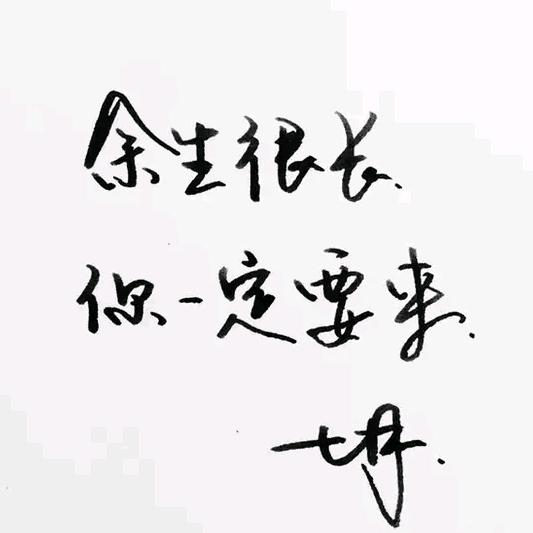 余生很长、
你一定要来.